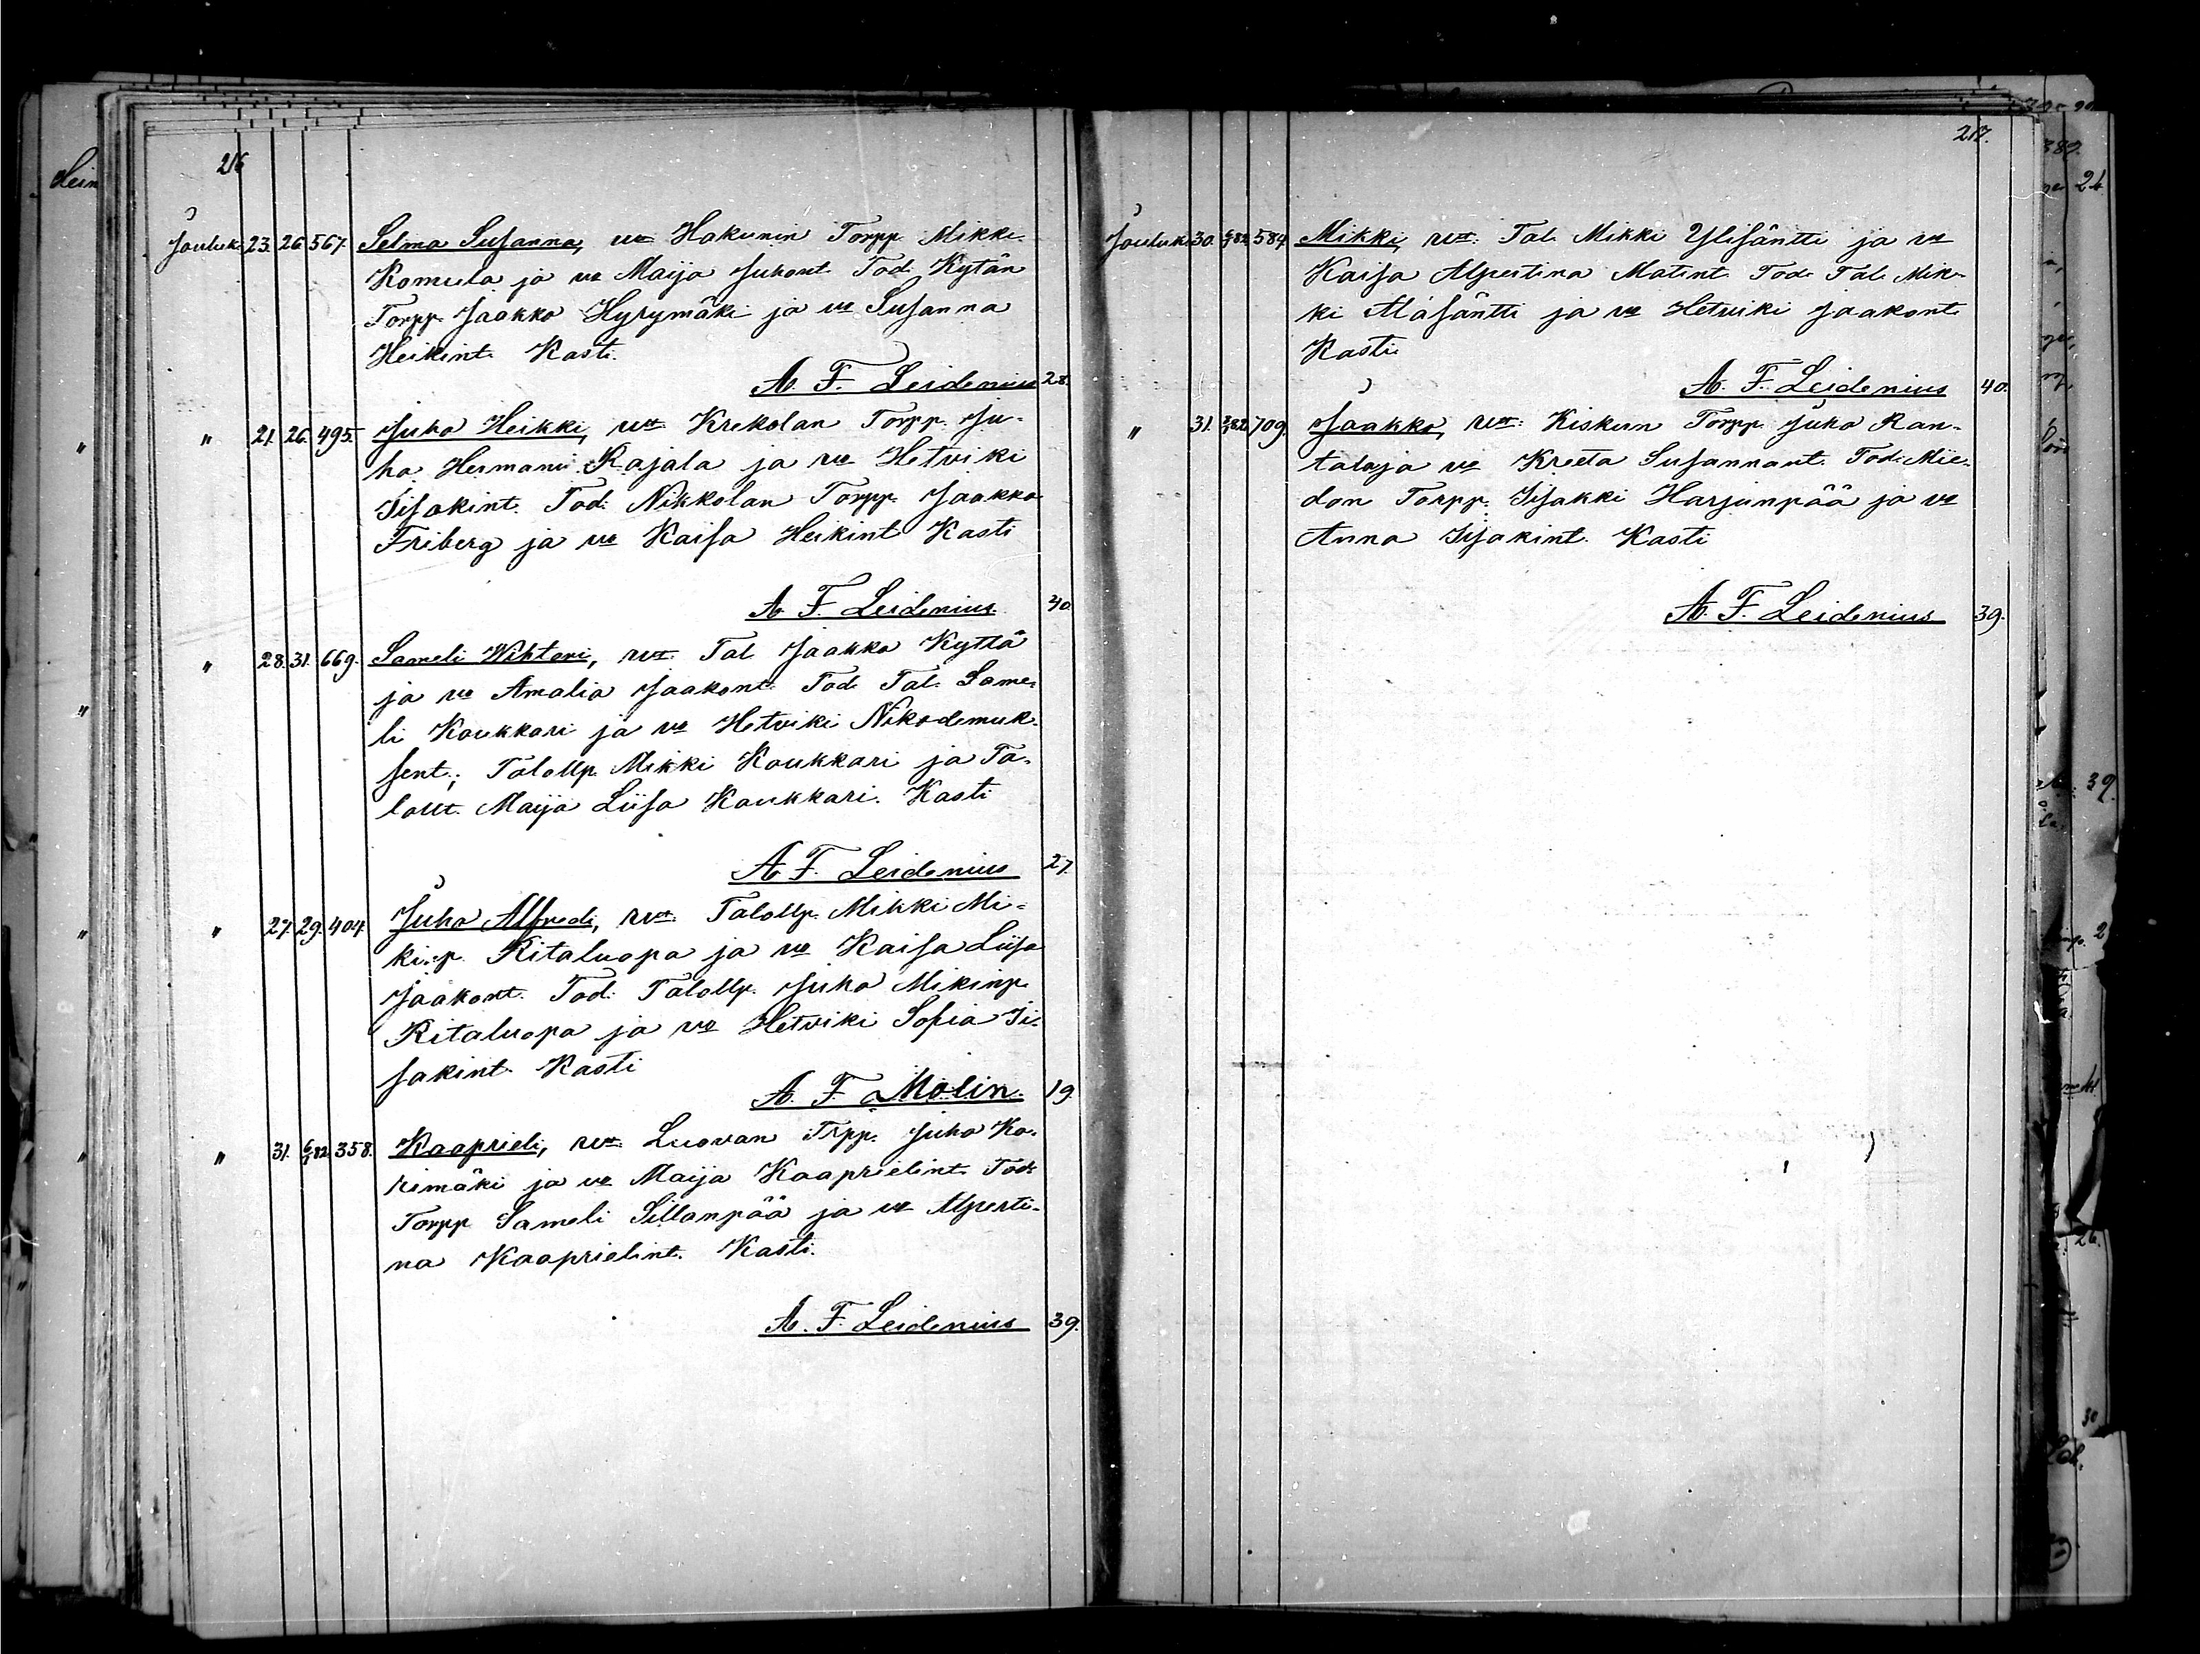 216
Jouluk. 23. 26. 567. Selma Susanna, vt Hakunin Torpp. Mikki
Komula ja vo Maija Juhont. Tod. Kytän
Torpp. Jaakko Hyrymäki ja vo Susanna
Heikint. Kasti.
A. F. Leidenius 28.
" 21. 26. 495. Juho Heikki, vt. Krekolan Torpp. Ju-
ho Hermanni Rajala ja vo Hetviki
Iisakint. Tod. Nikkolan Torpp. Jaakko
Friberg ja vo Kaisa Heikint Kasti
A. F. Leidenius. 40.
" 28. 31. 669. Sameli Wihtori, vt. Tal. Jaakko Kyttä
ja vo Amalia Jaakont. Tod. Tal. Same-
li Koukkari ja vo Hetviki Nikodemuk-
sent.; Talollp. Mikki Koukkari ja Ta-
lollt. Maija Liisa Koukkari. Kasti
A. F. Leidenius 27.
" 27. 29. 404. Juho Alfredi, vt. Talollp. Mikki Mi-
kinp. Ritaluopa ja vo Kaisa Liisa
Jaakont. Tod. Talollp. Juho Mikinp.
Ritaluopa ja vo Hetviki Sofia Ii-
sakint. Kasti
A. F. Molin. 19.
" 31. 6/1 82. 358. Kaaprieli, vt. Luovan Trpp. Juho Ko-
rimäki ja vo Maija Kaaprielint. Tod.
Torpp. Sameli Sillanpää ja vo Alperti-
na Kaaprielint. Kasti.
A. F. Leidenius 39.
217.
Jouluk. 30. 584. Mikki, vt. Tal. Mikki Ylisäntti ja vo
Kaisa Alpertina Matint. Tod. Tal. Mik-
ki Alasäntti ja vo Hetviki Jaakont.
Kasti
A. F. Leidenius 40.
" 31. 709. Jaakko, vt. Kiskun Torpp. Juho Ran-
tala ja vo Kreeta Susannant. Tod. Mie-
don Torpp. Iisakki Harjunpää ja vo
Anna Iisakint. Kasti
A. F. Leidenius 39.